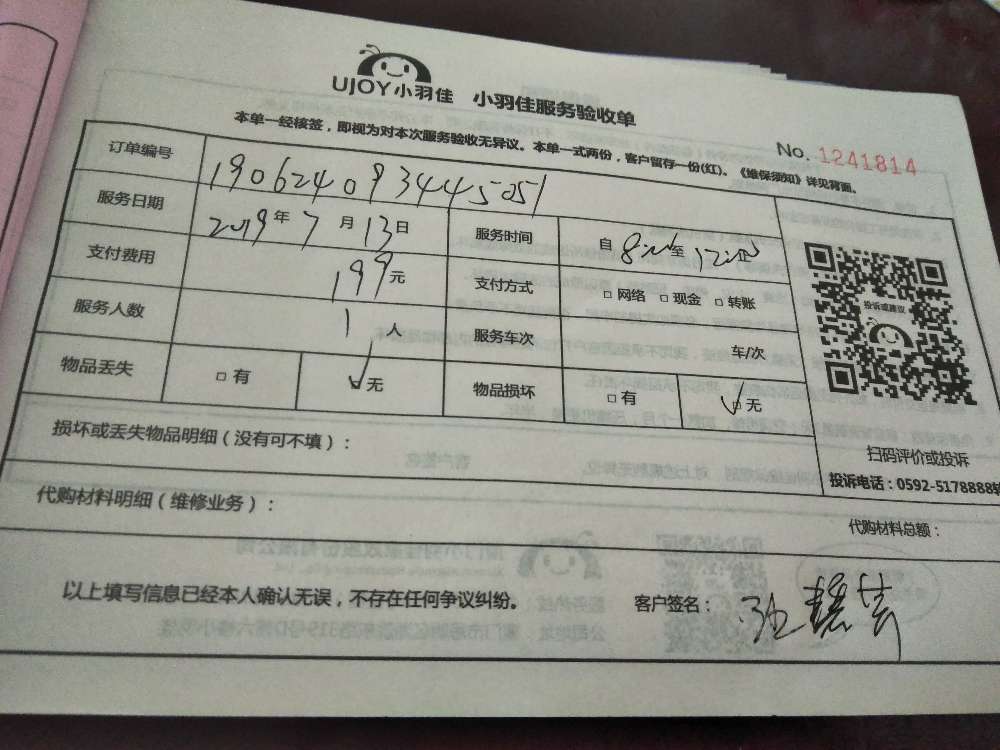 UJOY小羽佳 小羽佳服务验收单
本单一经核签，即视为对本次服务验收无异议。本单一式两份，客户留存一份(红)。《维保须知》详见背面。
No. 1241814
订单编号 19062409344445051
服务日期 2019年7月13日 服务时间 自8:00至12:00
支付费用 199元 支付方式 □网络 □现金 □转账
服务人数 1人 服务车次 车/次
物品丢失 □有 ☑无 物品损坏 □有 ☑无
投诉或建议
扫码评价或投诉
投诉电话：0592-5178888转
损坏或丢失物品明细（没有可不填）：
代购材料明细（维修业务）： 代购材料总额：
以上填写信息已经本人确认无误，不存在任何争议纠纷。 客户签名：